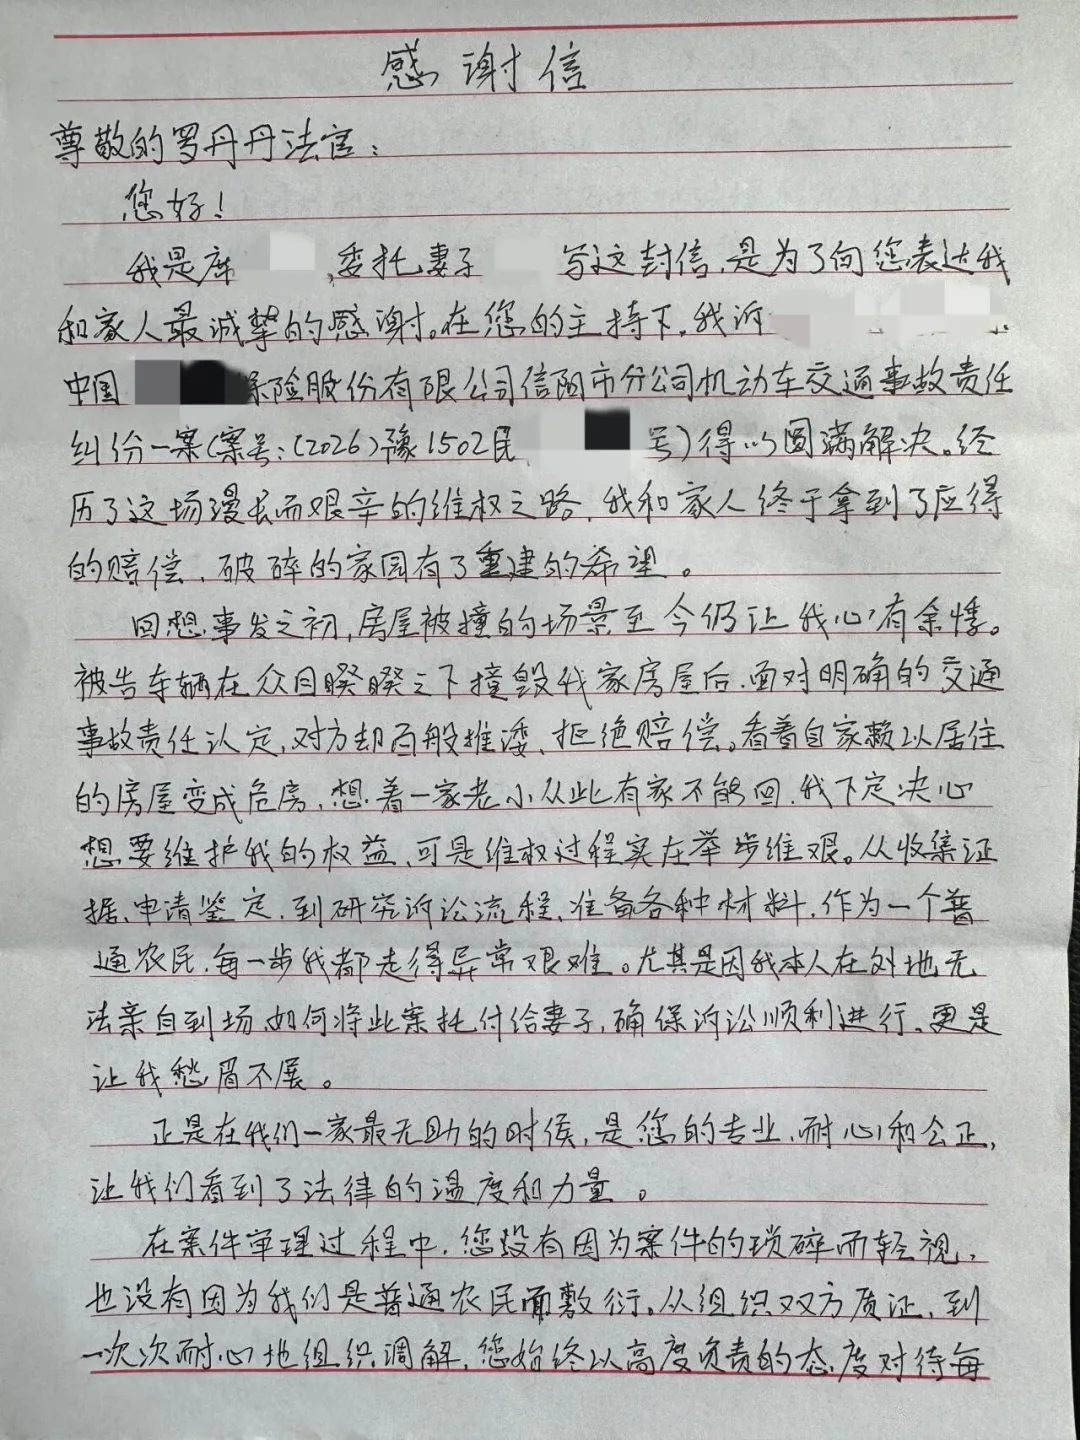 感谢信
尊敬的罗丹丹法官：
您好！
我是席 ,委托妻子 写这封信,是为了向您表达我
和家人最诚挚的感谢。在您的主持下,我诉
中国 保险股份有限公司信阳市分公司机动车交通事故责任
纠纷一案(案号:(2026)豫1502民 号)得以圆满解决。经
历了这场漫长而艰辛的维权之路,我和家人终于拿到了应得
的赔偿,破碎的家园有了重建的希望。
回想事发之初,房屋被撞的场景至今仍让我心有余悸。
被告车辆在众目睽睽之下撞毁我家房屋后,面对明确的交通
事故责任认定,对方却百般推诿、拒绝赔偿。看着自家赖以居住
的房屋变成危房,想着一家老小从此有家不能回,我下定决心
想要维护我的权益,可是维权过程实在举步维艰。从收集证
据、申请鉴定,到研究诉讼流程、准备各种材料,作为一个普
通农民,每一步我都走得异常艰难。尤其是因我本人在外地无
法亲自到场,如何将此案托付给妻子,确保诉讼顺利进行,更是
让我愁眉不展。
正是在我们一家最无助的时候,是您的专业、耐心和公正,
让我们看到了法律的温度和力量。
在案件审理过程中,您没有因为案件的琐碎而轻视,
也没有因为我们是普通农民而敷衍。从组织双方质证,到
一次次耐心地组织调解,您始终以高度负责的态度对待每